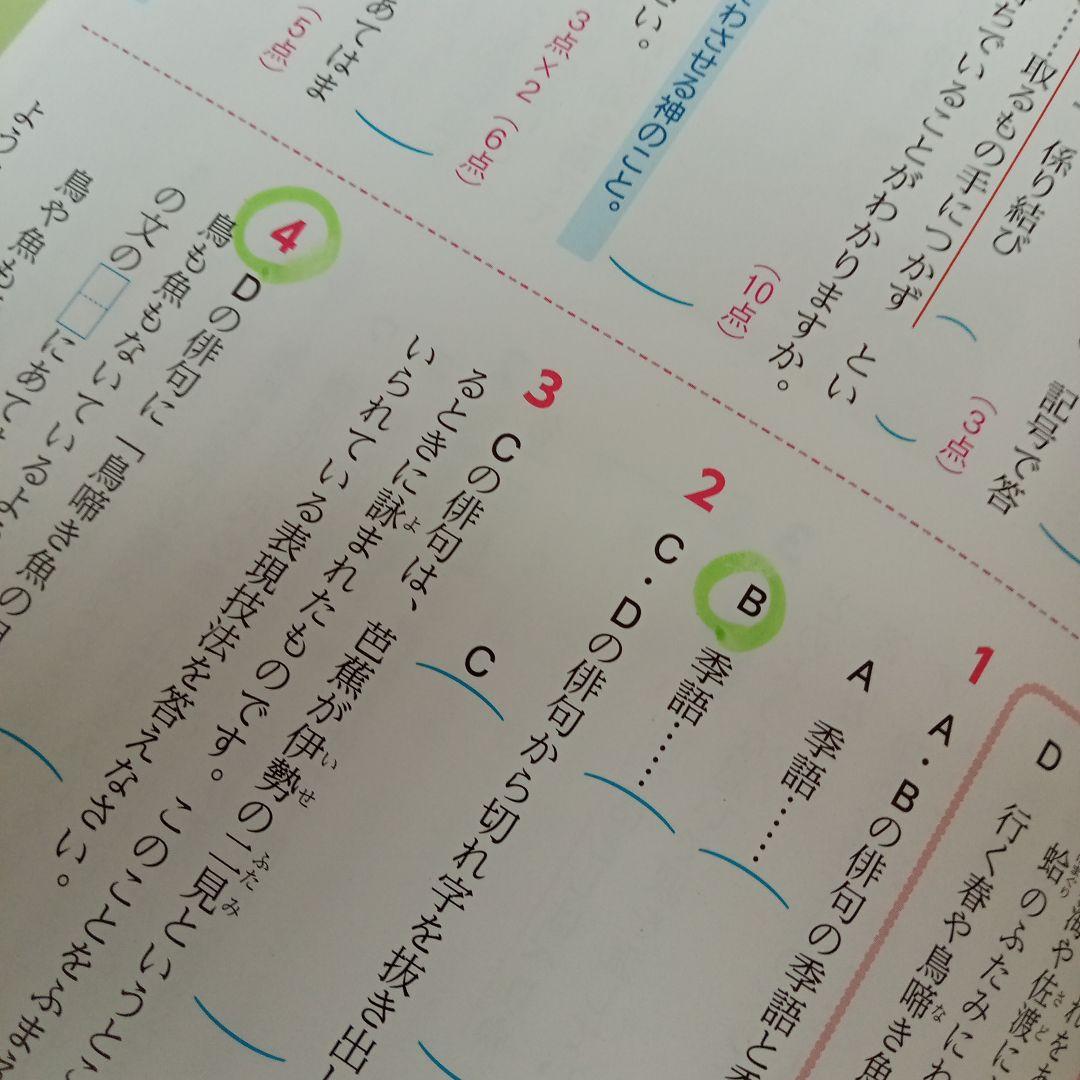 係り結び
取るもの手につかず
ちでいることがわかりますか。
とい
記号で答
（3点）
（10点）
わさせる神のこと。
い。
3点×2（6点）
あてはま
（5点）
れを
海や佐渡に
さど
D 蛤のふたみにわ
行く春や鳥啼き魚
な
1 A・Bの俳句の季語と季
A 季語……
B 季語……
2 C・Dの俳句から切れ字を抜き出し
C
3 Cの俳句は、芭蕉が伊勢の二見というとこ
いせ
ふたみ
るときに詠まれたものです。このことをふまえ
よ
いられている表現技法を答えなさい。
4 Dの俳句に「鳥啼き魚の
鳥も魚もないているよ
の文の
にあては
鳥や魚も
よう